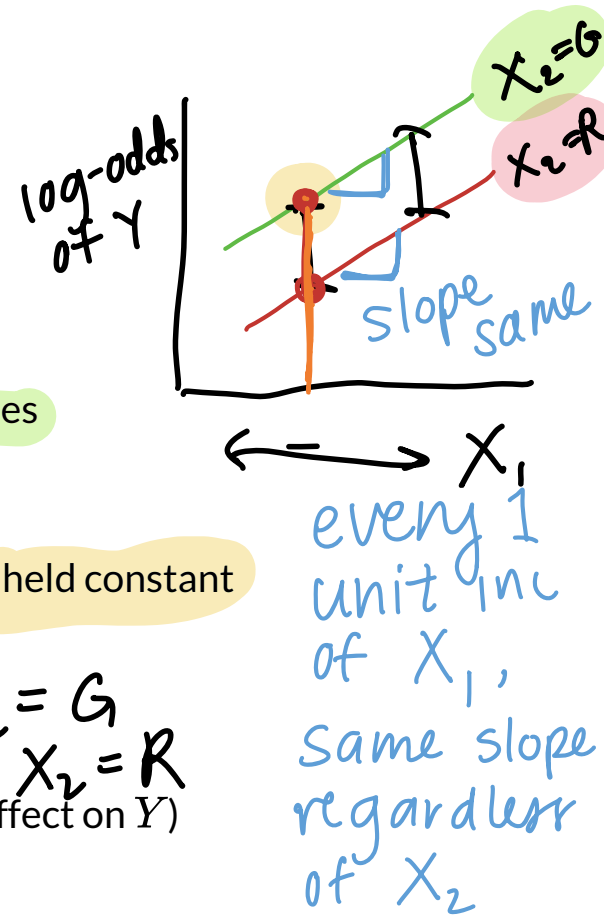 X₂=G
X₂=R
log-odds
of Y
slope
same
es
X₁
every 1
unit inc
of X₁,
same slope
regardless
of X₂
held constant
= G
X₂ = R
ffect on Y)